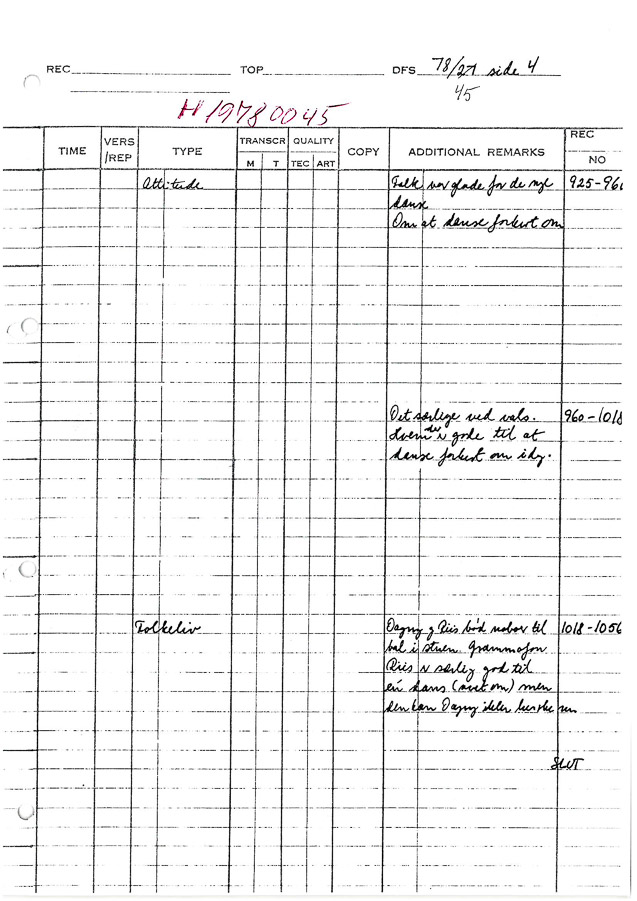 REC. TOP DFS 78/27 side 4
45
H/19780045
TIME VERS/REP TYPE TRANSCR QUALITY COPY ADDITIONAL REMARKS REC NO
M T TEC ART
Attitude Folk var glade for de nye 925-960
danse
Om at danse forkert om
Det særlige ved vals. 960-1018
Hvem der er gode til at
danse forkert om idag.
Folkeliv Dagny og Riis bød naboer til 1018-1056
bal i stuen. Grammofon
Riis er særlig god til
én dans (avet om) men
den kan Dagny ikke
SLUT